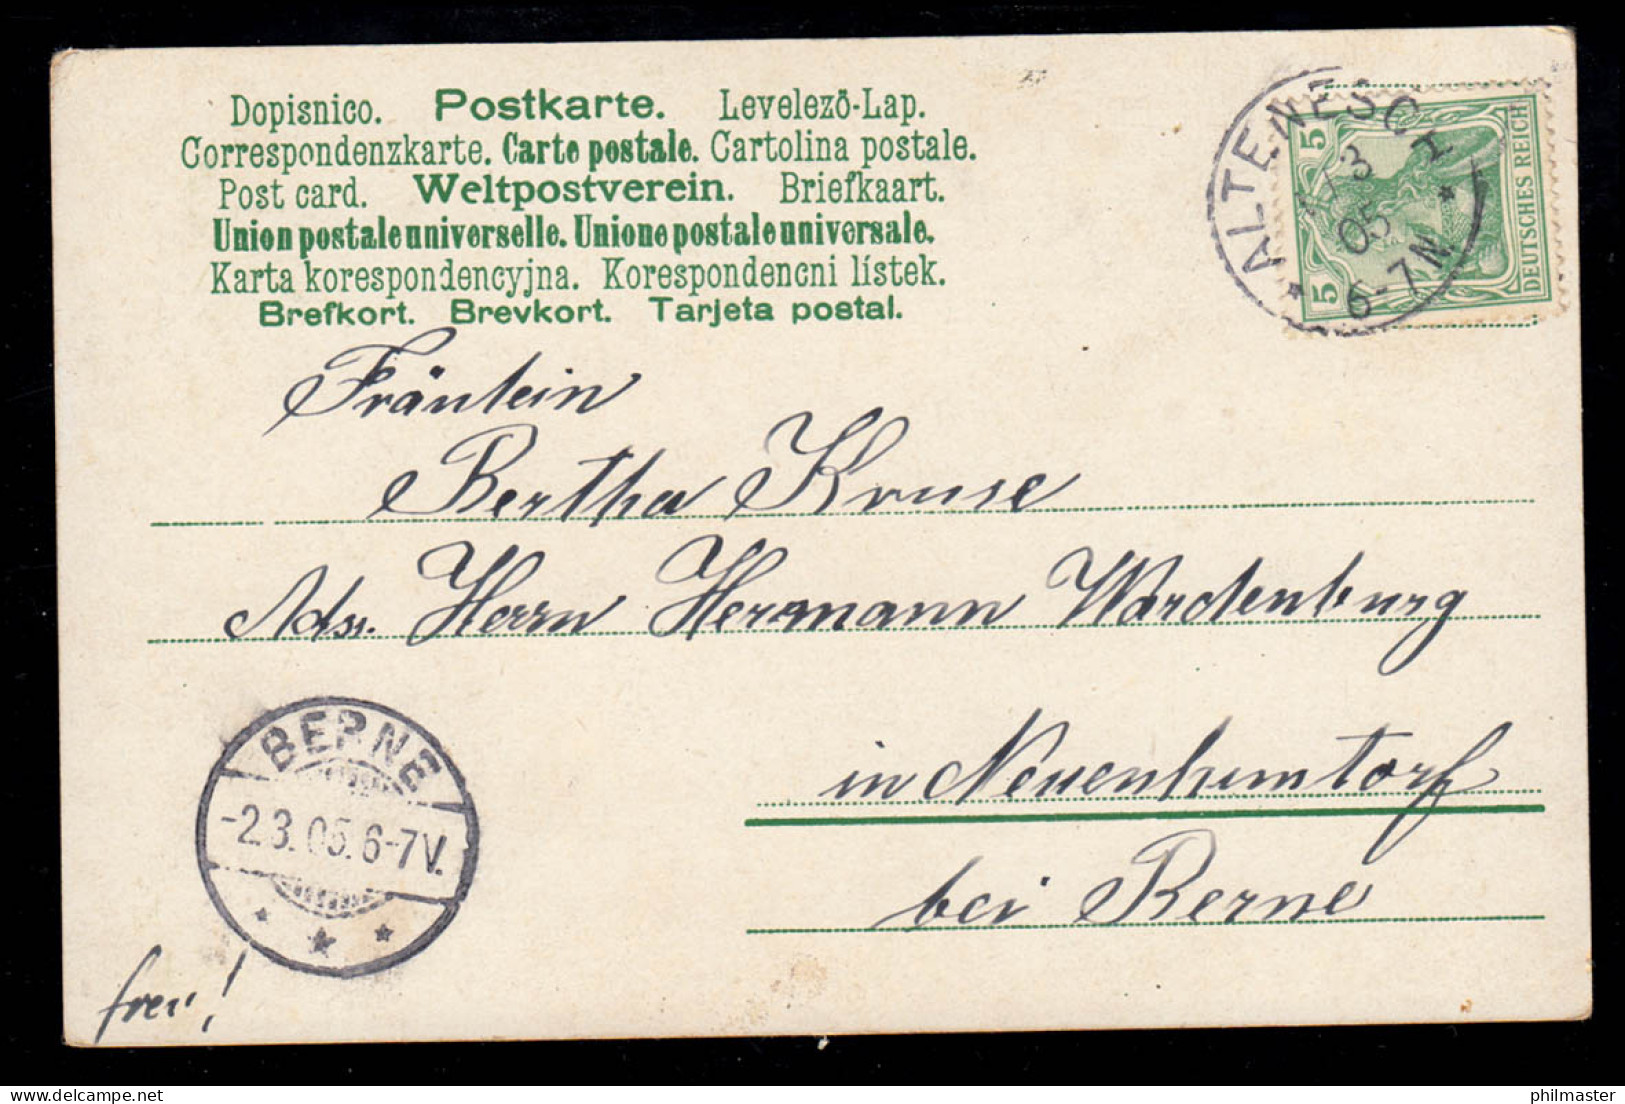 Dopisnico. Postkarte. Levelező-Lap.
Correspondenzkarte. Carte postale. Cartolina postale.
Post card. Weltpostverein. Briefkaart.
Union postale universelle. Unione postale universale.
Karta korespondencyjna. Korespondencni lístek.
Brefkort. Brevkort. Tarjeta postal.
ALTENESCH
1 3
05
6-7 N.
5 5
DEUTSCHES REICH
Fräulein
Bertha Kruse
Adss. Herrn Hermann Wardenburg
in Neuenhuntorf
bei Berne
BERNE
-2.3.05.6-7V.
frei!
philmaster